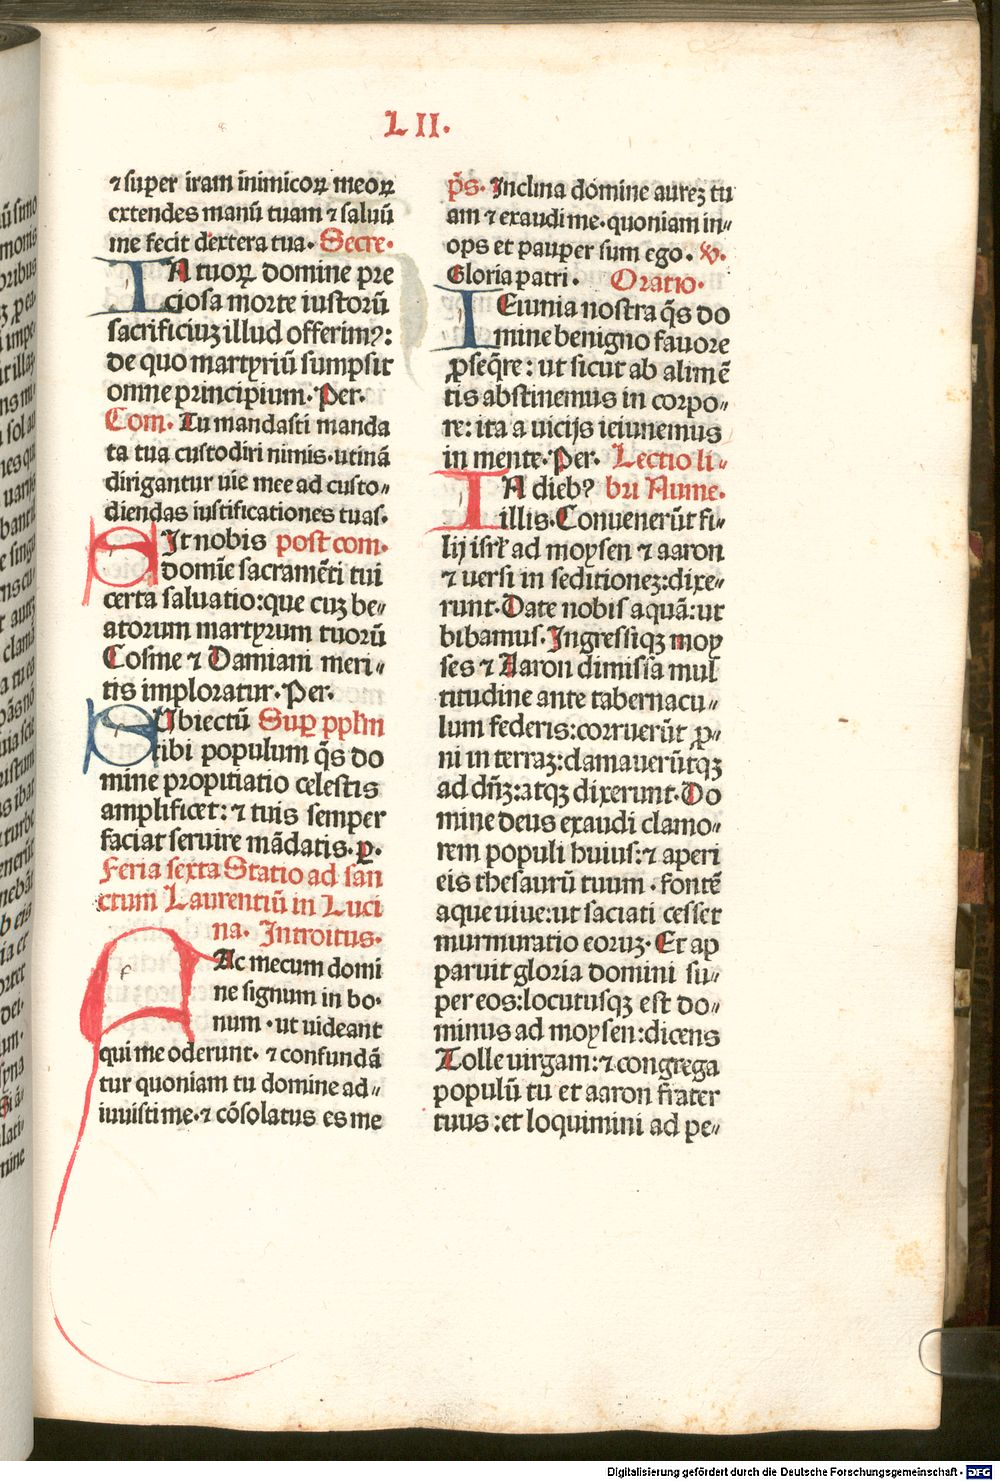 LII.
⁊ super iram inimicoꝝ meoꝝ
extendes manū tuam ⁊ saluū
me fecit dextera tua. Secre.
IN tuoꝝ domine pre
ciosa morte iustorū
sacrificiuꝫ illud offerimꝰ:
de quo martyriū sumpsit
omne principium. Per.
Com. Tu mandasti manda
ta tua custodiri nimis. utinā
dirigantur uie mee ad custo⸗
diendas iustificationes tuas.
SIt nobis post com.
domie sacramēti tui
certa saluatio: que cuꝫ be⸗
atorum martyrum tuorū
Cosme ⁊ Damiani meri⸗
tis imploratur. Per.
SUbiectū Suꝑ pplm
tibi populum q̄s do
mine propitiatio celestis
amplificet: ⁊ tuis semper
faciat seruire mādatis. ꝑ.
Feria sexta Statio ad san
ctum Laurentiū in Luci
na. Introitus.
FAc mecum domi
ne signum in bo⸗
num. ut uideant
qui me oderunt. ⁊ confundā
tur quoniam tu domine ad⸗
iuuisti me. ⁊ cōsolatus es me
p̄s. Inclina domine aureꝫ tu
am ⁊ exaudi me. quoniam in⸗
ops et pauper sum ego. ℣.
Gloria patri. Oratio.
IEiunia nostra q̄s do
mine benigno fauore
ꝓseq̄re: ut sicut ab alimē
tis abstinemus in corpo⸗
re: ita a uicijs ieiunemus
in mente. Per. Lectio li⸗
IN diebꝰ bri Nume.
illis. Conuenerūt fi⸗
lij isrł ad moysen ⁊ aaron
⁊ uersi in seditioneꝫ: dixe⸗
runt. Date nobis aquā: ut
bibamus. Ingressusqꝫ moy
ses ⁊ Aaron dimissa mul
titudine ante tabernacu⸗
lum federis: corruerūt ꝓ⸗
ni in terraꝫ: clamauerūtqꝫ
ad dn̄ꝫ: atqꝫ dixerunt. Do
mine deus exaudi clamo⸗
rem populi huius: ⁊ aperi
eis thesaurū tuum. fontē
aque uiue: ut saciati cesset
murmuratio eoruꝫ. Et ap
paruit gloria domini su⸗
per eos: locutusqꝫ est do⸗
minus ad moysen: dicens
Tolle uirgam: ⁊ congrega
populū tu et aaron frater
tuus: et loquimini ad pe⸗
Digitalisierung gefördert durch die Deutsche Forschungsgemeinschaft - DFG